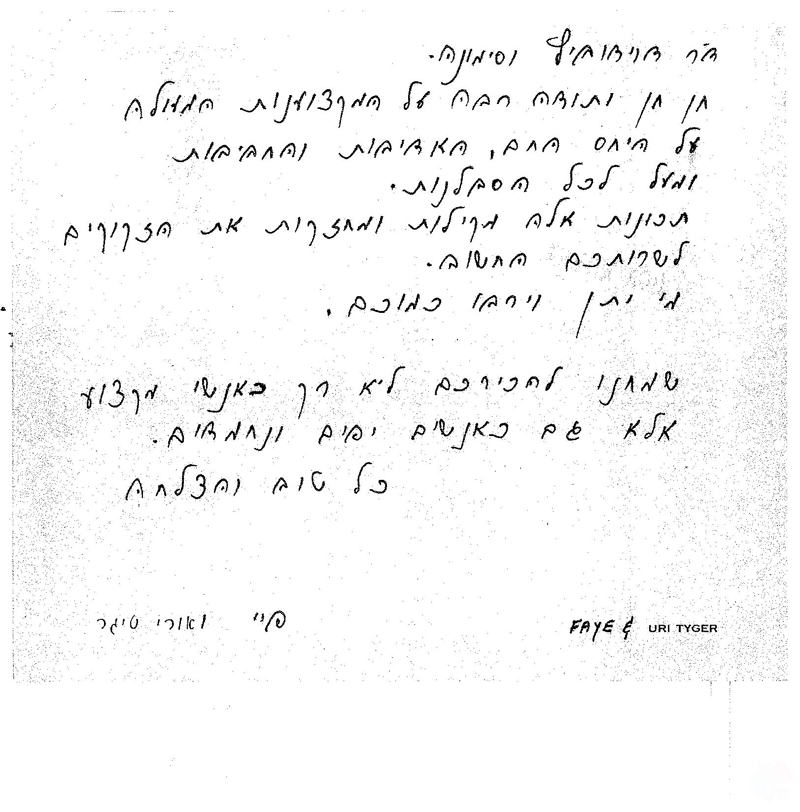 ד"ר דוידוביץ וסימונה.
חן חן ותודה רבה על המקצוענות המעולה
על היחס החם, האדיבות והחביבות
ומעל לכל הסבלנות.
תכונות אלה מקילות ומחזקות את הזקוקים
לשרותכם החשוב.
מי יתן וירבו כמוכם.
שמחנו להכירכם לא רק כאנשי מקצוע
אלא גם כאנשים יפים ונחמדים.
כל טוב והצלחה
פיי ואורי טיגר
FAYE & URI TYGER